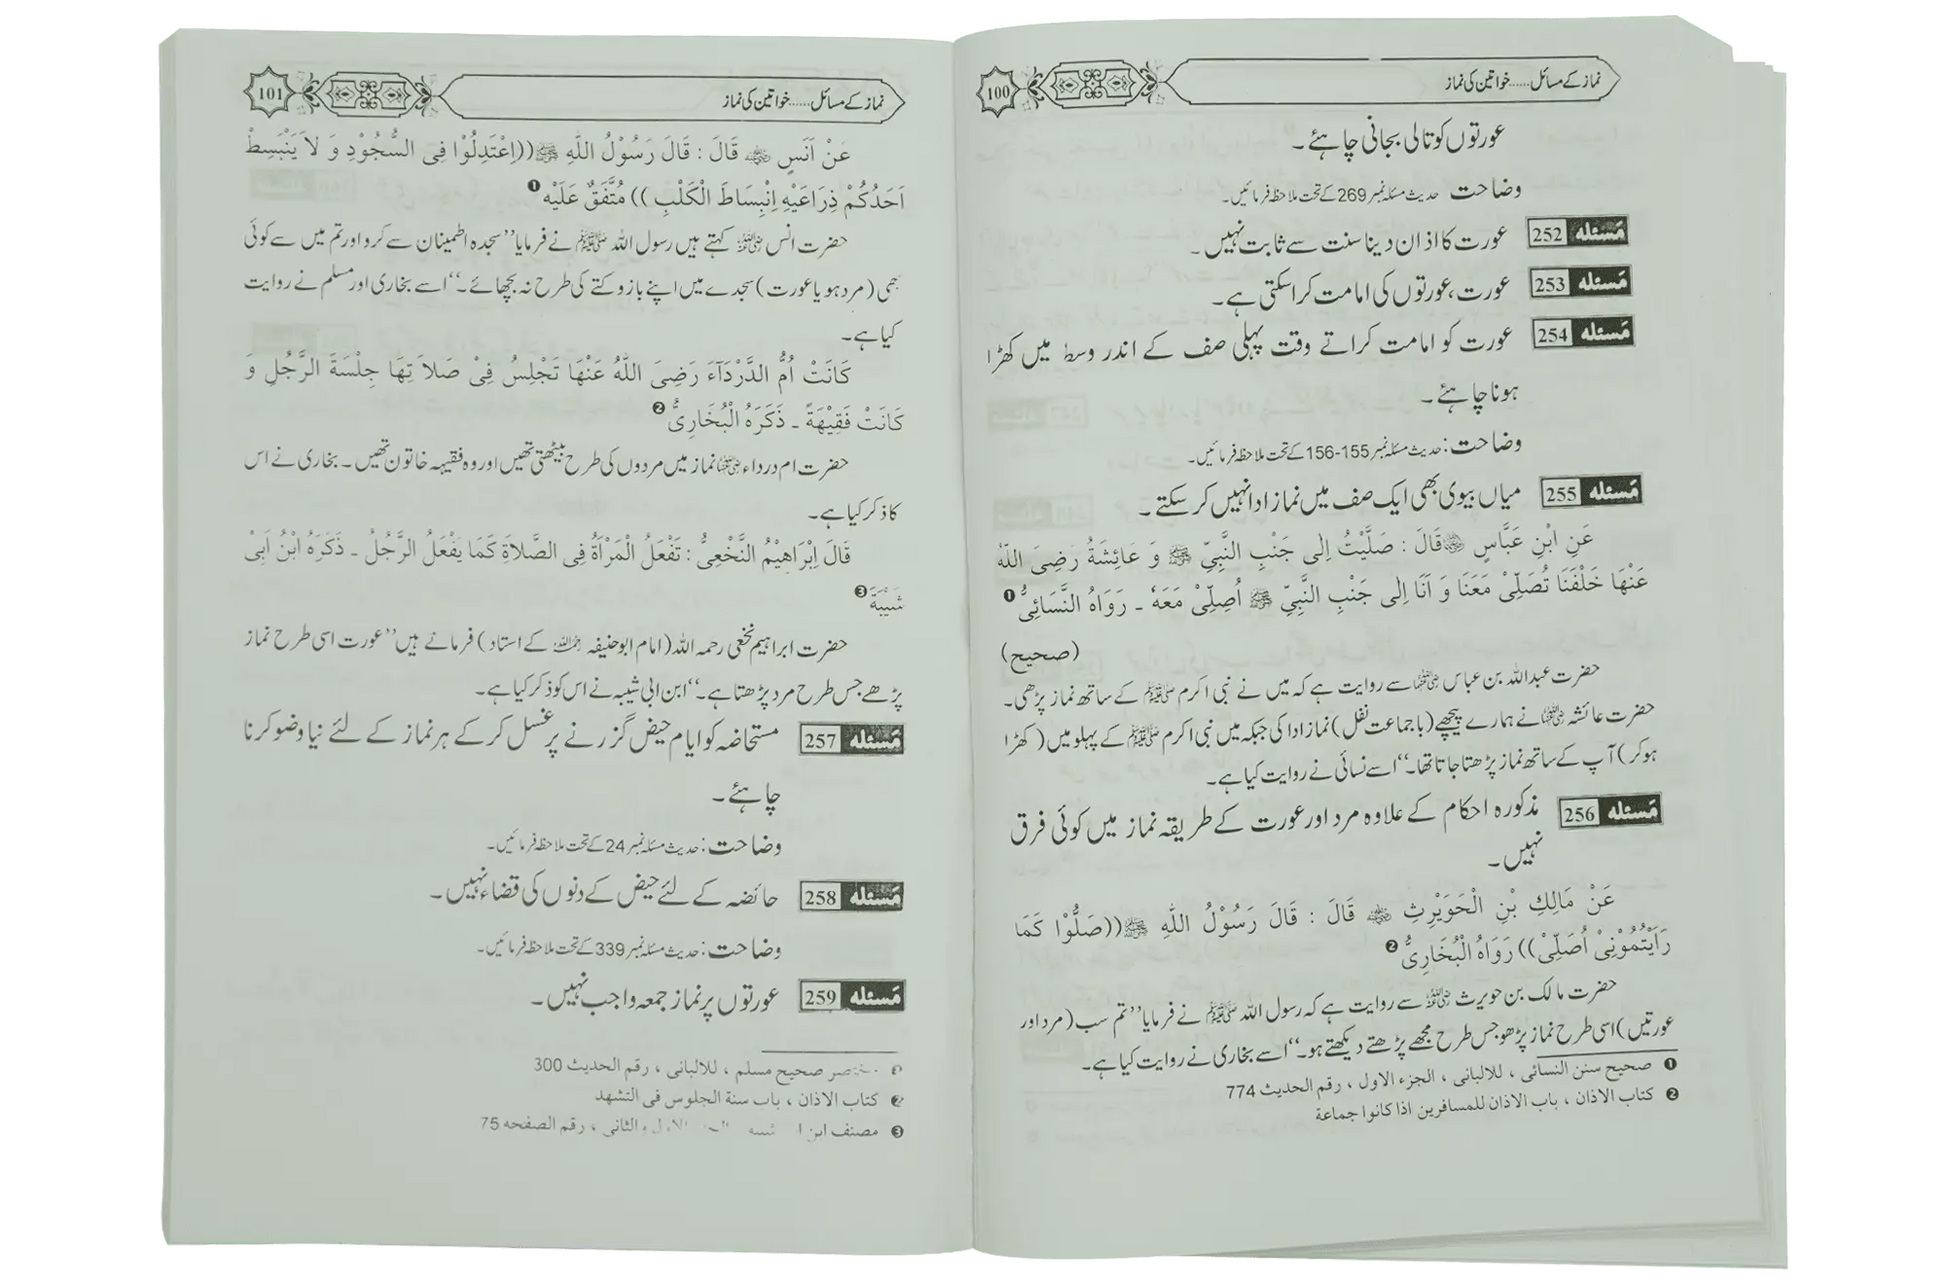 نماز کے مسائل......خواتین کی نماز
100
عورتوں کو تالی بجانی چاہئے۔
وضاحت حدیث مسئلہ نمبر 269 کے تحت ملاحظہ فرمائیں۔
مَسئله 252 عورت کا اذان دینا سنت سے ثابت نہیں۔
مَسئله 253 عورت، عورتوں کی امامت کراسکتی ہے۔
مَسئله 254 عورت کو امامت کراتے وقت پہلی صف کے اندر وسط میں کھڑا
ہونا چاہئے۔
وضاحت : حدیث مسئلہ نمبر 155-156 کے تحت ملاحظہ فرمائیں۔
مَسئله 255 میاں بیوی بھی ایک صف میں نماز ادا نہیں کر سکتے۔
عَنِ ابْنِ عَبَّاسٍ ؓ قَالَ : صَلَّيْتُ اِلٰى جَنْبِ النَّبِيِّ ﷺ وَ عَائِشَةُ رَضِىَ اللّٰهُ
عَنْهَا خَلْفَنَا تُصَلِّىْ مَعَنَا وَ اَنَا اِلٰى جَنْبِ النَّبِيِّ ﷺ اُصَلِّىْ مَعَهٗ ۔ رَوَاهُ النَّسَائِىُّ ❶
(صحيح)
حضرت عبداللہ بن عباس ؓ سے روایت ہے کہ میں نے نبی اکرم ﷺ کے ساتھ نماز پڑھی۔
حضرت عائشہ ؓ نے ہمارے پیچھے (باجماعت نفل) نماز ادا کی جبکہ میں نبی اکرم ﷺ کے پہلو میں (کھڑا
ہوکر) آپ کے ساتھ نماز پڑھتا جاتا تھا۔‘‘ اسے نسائی نے روایت کیا ہے۔
مَسئله 256 مذکورہ احکام کے علاوہ مرد اور عورت کے طریقہ نماز میں کوئی فرق
نہیں۔
عَنْ مَالِكِ بْنِ الْحَوَيْرِثِ ؓ قَالَ : قَالَ رَسُوْلُ اللّٰهِ ﷺ ((صَلُّوْا كَمَا
رَاَيْتُمُوْنِىْ اُصَلِّىْ)) رَوَاهُ الْبُخَارِىُّ ❷
حضرت مالک بن حویرث ؓ سے روایت ہے کہ رسول اللہ ﷺ نے فرمایا ’’تم سب (مرد اور
عورتیں) اسی طرح نماز پڑھو جس طرح مجھے پڑھتے دیکھتے ہو۔‘‘ اسے بخاری نے روایت کیا ہے۔
❶ صحيح سنن النسائى ، للالبانى ، الجزء الاول ، رقم الحديث 774
❷ كتاب الاذان ، باب الاذان للمسافرين اذا كانوا جماعة
نماز کے مسائل......خواتین کی نماز
101
عَنْ اَنَسٍ ؓ قَالَ : قَالَ رَسُوْلُ اللّٰهِ ﷺ ((اِعْتَدِلُوْا فِى السُّجُوْدِ وَ لاَ يَنْبَسِطْ
اَحَدُكُمْ ذِرَاعَيْهِ اِنْبِسَاطَ الْكَلْبِ )) مُتَّفَقٌ عَلَيْهِ ❶
حضرت انس ؓ کہتے ہیں رسول اللہ ﷺ نے فرمایا ’’سجدہ اطمینان سے کرو اور تم میں سے کوئی
بھی (مرد ہو یا عورت) سجدے میں اپنے بازو کتے کی طرح نہ بچھائے۔‘‘ اسے بخاری اور مسلم نے روایت
کیا ہے۔
كَانَتْ اُمُّ الدَّرْدَآءَ رَضِىَ اللّٰهُ عَنْهَا تَجْلِسُ فِىْ صَلاَ تِهَا جِلْسَةَ الرَّجُلِ وَ
كَانَتْ فَقِيْهَةً ۔ ذَكَرَهُ الْبُخَارِىُّ ❷
حضرت ام درداء ؓ نماز میں مردوں کی طرح بیٹھتی تھیں اور وہ فقیہہ خاتون تھیں۔ بخاری نے اس
کا ذکر کیا ہے۔
قَالَ اِبْرَاهِيْمُ النَّخْعِىُّ : تَفْعَلُ الْمَرْاَةُ فِى الصَّلاَةِ كَمَا يَفْعَلُ الرَّجُلُ ۔ ذَكَرَهُ ابْنُ اَبِىْ
شَيْبَةَ ❸
حضرت ابراہیم نخعی رحمہ اللہ (امام ابوحنیفہ رحمہ اللہ کے استاد) فرماتے ہیں ’’عورت اسی طرح نماز
پڑھے جس طرح مرد پڑھتا ہے۔‘‘ ابن ابی شیبہ نے اس کو ذکر کیا ہے۔
مَسئله 257 مستحاضہ کو ایام حیض گزرنے پر غسل کر کے ہر نماز کے لئے نیا وضو کرنا
چاہئے۔
وضاحت : حدیث مسئلہ نمبر 24 کے تحت ملاحظہ فرمائیں۔
مَسئله 258 حائضہ کے لئے حیض کے دنوں کی قضاء نہیں۔
وضاحت : حدیث مسئلہ نمبر 339 کے تحت ملاحظہ فرمائیں۔
مَسئله 259 عورتوں پر نماز جمعہ واجب نہیں۔
مختصر صحيح مسلم ، للالبانى ، رقم الحديث 300
❷ كتاب الاذان ، باب سنة الجلوس فى التشهد
❸ مصنف ابن شيبه الاول والثانى ، رقم الصفحه 75